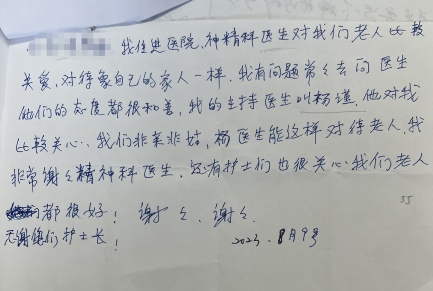 我住进医院,神精科医生对我们老人比较
关爱,对待象自己的家人一样,我有问题常々去问医生
他们的态度都很和善,我的主持医生叫杨谨,他对我
比较关心,我们非亲非故,杨医生能这样对待老人,我
非常谢々精神科医生,还有护士们也很关心我们老人
都很好!谢々,谢々.
谢你们护士长!
2023.8月9号
55